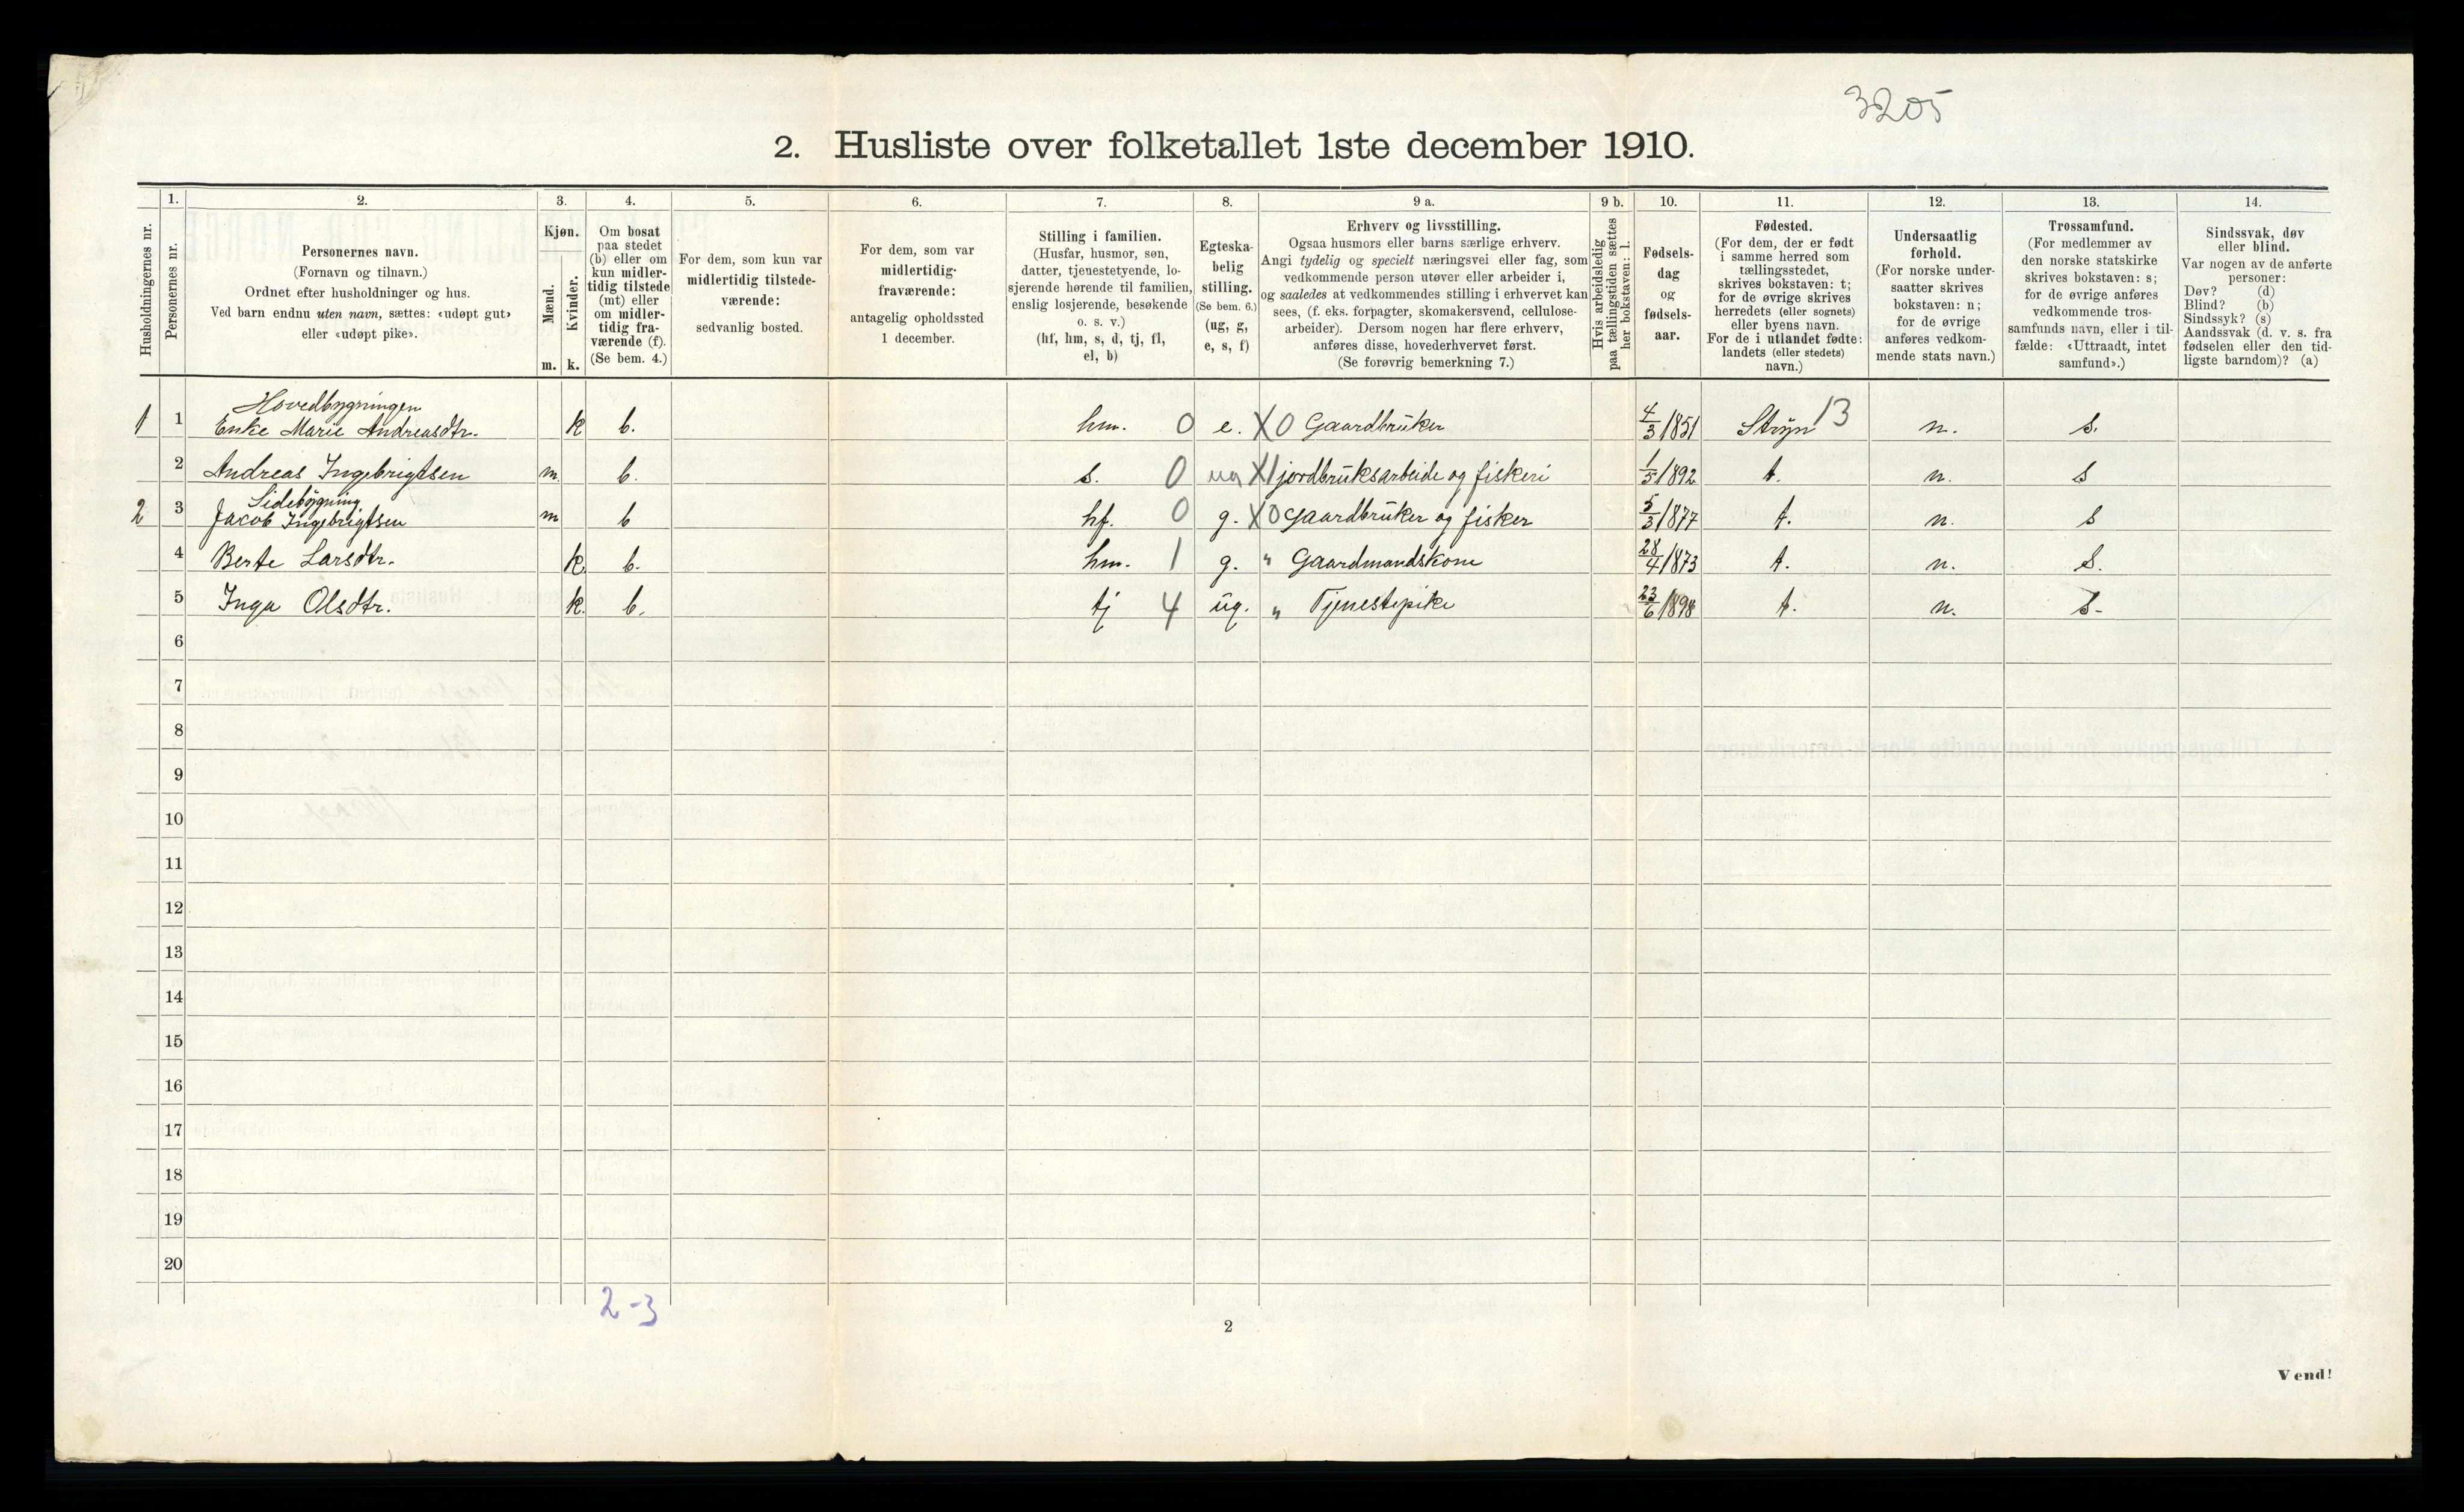 3205
2. Husliste over folketallet 1ste december 1910.
Husholdningernes nr.
1.
Personernes nr.
2.
Personernes navn.
(Fornavn og tilnavn.)
Ordnet efter husholdninger og hus.
Ved barn endnu uten navn, sættes: «udøpt gut»
eller «udøpt pike».
3.
Kjøn.
Mænd.
Kvinder.
m. k.
4.
Om bosat
paa stedet
(b) eller om
kun midler-
tidig tilstede
(mt) eller
om midler-
tidig fra-
værende (f).
(Se bem. 4.)
5.
For dem, som kun var
midlertidig tilstede-
værende:
sedvanlig bosted.
6.
For dem, som var
midlertidig
fraværende:
antagelig opholdssted
1 december.
7.
Stilling i familien.
(Husfar, husmor, søn,
datter, tjenestetyende, lo-
sjerende hørende til familien,
enslig losjerende, besøkende
o. s. v.)
(hf, hm, s, d, tj, fl,
el, b)
8.
Egteska-
belig
stilling.
(Se bem. 6.)
(ug, g,
e, s, f)
9 a.
Erhverv og livsstilling.
Ogsaa husmors eller barns særlige erhverv.
Angi tydelig og specielt næringsvei eller fag, som
vedkommende person utøver eller arbeider i,
og saaledes at vedkommendes stilling i erhvervet kan
sees, (f. eks. forpagter, skomakersvend, cellulose-
arbeider). Dersom nogen har flere erhverv,
anføres disse, hovederhvervet først.
(Se forøvrig bemerkning 7.)
9 b.
Hvis arbeidsledig
paa tællingstiden sættes
her bokstaven: l.
10.
Fødsels-
dag
og
fødsels-
aar.
11.
Fødested.
(For dem, der er født
i samme herred som
tællingsstedet,
skrives bokstaven: t;
for de øvrige skrives
herredets (eller sognets)
eller byens navn.
For de i utlandet fødte:
landets (eller stedets)
navn.)
12.
Undersaatlig
forhold.
(For norske under-
saatter skrives
bokstaven: n;
for de øvrige
anføres vedkom-
mende stats navn.)
13.
Trossamfund.
(For medlemmer av
den norske statskirke
skrives bokstaven: s;
for de øvrige anføres
vedkommende tros-
samfunds navn, eller i til-
fælde: «Uttraadt, intet
samfund».)
14.
Sindssvak, døv
eller blind.
Var nogen av de anførte
personer:
Døv? (d)
Blind? (b)
Sindssyk? (s)
Aandssvak (d. v. s. fra
fødselen eller den tid-
ligste barndom)? (a)
Hovedbygningen
1 1 Enke Marie Andreasdtr. k b. hm. 0 e. X0 Gaardbruker 4/3 1851 Stryn 13 n. s.
2 Andreas Ingebrigtsen m b. s. 0 ug X1 jordbruksarbeide og fiskeri 1/5 1892 t. n. s
Sidebygning
2 3 Jacob Ingebrigtsen m b hf. 0 g. X0 Gaardbruker og fisker 5/3 1877 t. n. s
4 Berte Larsdtr. k. b. hm. 1 g. " Gaardmandskone 28/4 1873 t. n. s.
5 Inga Olsdtr. k. b. tj 4 ug. " Tjenestepike 23/6 1898 t. n. s.
6
7
8
9
10
11
12
13
14
15
16
17
18
19
20
2-3
2
Vend!